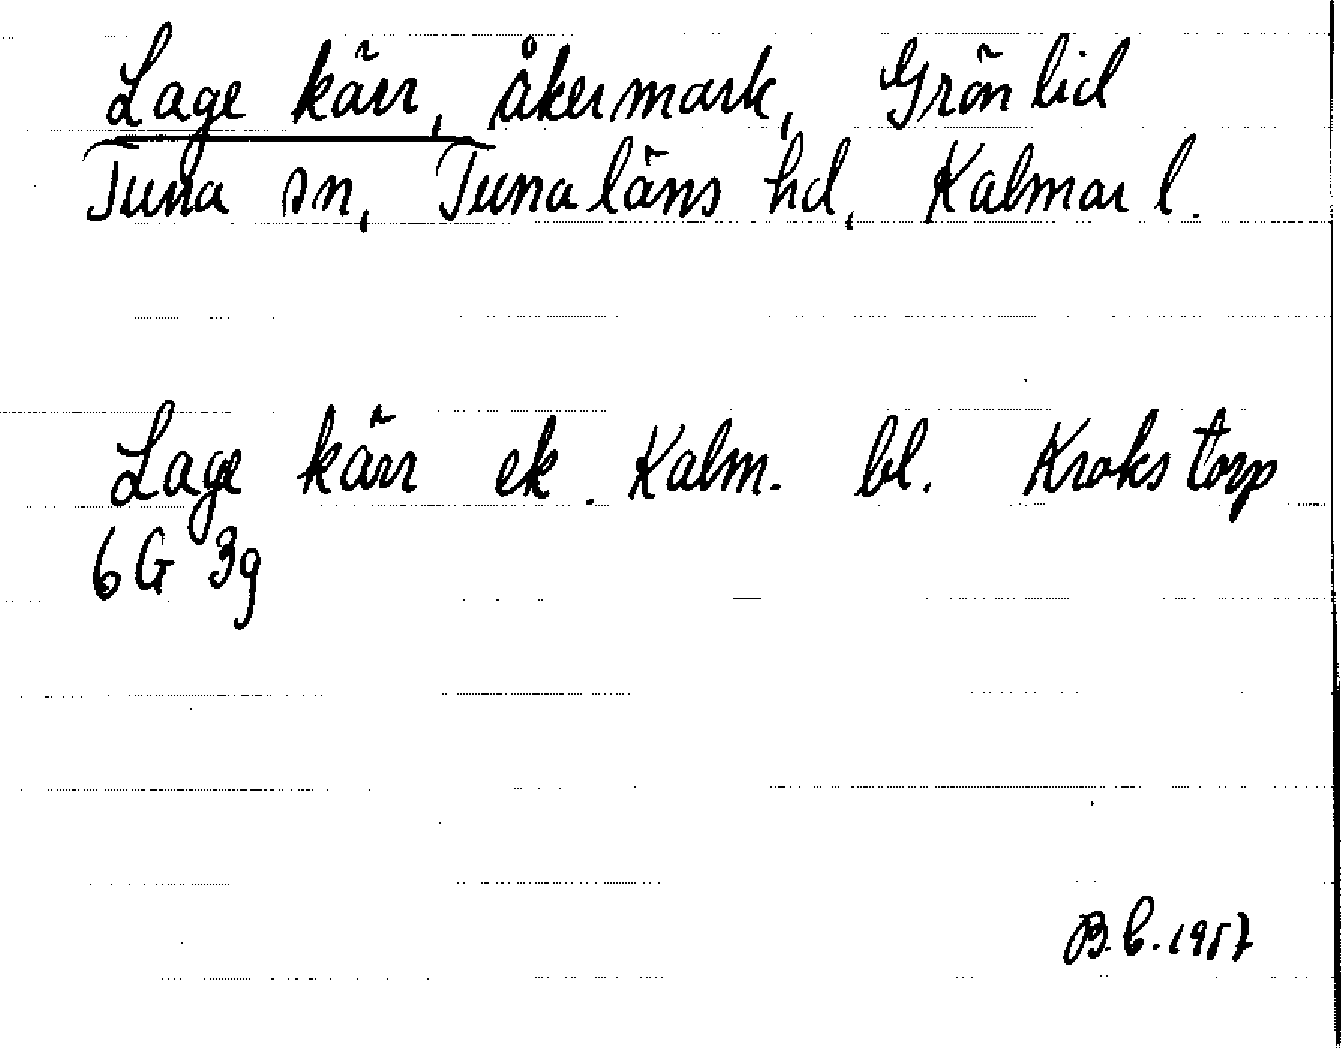 Lage kärr, åkermark, Grönlid
Tuna sn, Tunaläns hd, Kalmar l.
Lage kärr ek. Kalm. bl. Krokstorp
6G 3g
B.C. 1957